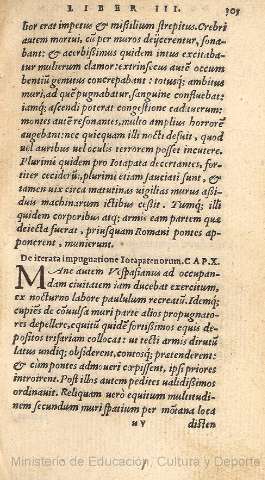 LIBER III. 305
lior erat impetus & missilium strepitus. Crebri
autem mortui, cũ per muros deijcerentur, sona-
bant: & acerbissimus quidem intus excitaba-
tur mulierum clamor: extrinsecus autẽ occum
bentiũ gemitus concrepabant: totusq; ambitus
muri, ad quẽ pugnabatur, sanguine confluebat:
iamq; ascendi poterat congestione cadauerum:
montes autẽ resonantes, multo amplius horrorẽ
augebant: nec quicquam illi nocti defuit, quod
uel auribus uel oculis terrorem posset incutere.
Plurimi quidem pro Iotapata decertantes, for-
titer cecidẽrũt, plurimi etiam sauciati sunt, &
tamen uix circa matutinas uigilias murus assi-
duis machinarum ictibus cessit. Tumq; illi
quidem corporibus atq; armis eam partem quæ
deiecta fuerat, priusquam Romani pontes ap-
ponerent, munierunt.
De iterata impugnatione Iotapatenorum. CAP. X.
MAne autem Vespasianus ad occupan-
dam ciuitatem iam ducebat exercitum,
ex nocturno labore paululum recreatũ. Idemq;
cupiẽs de cõuulsa muri parte alios propugnato-
res depellere, equitũ quidẽ fortissimos equis de-
positos trifariam collocat: ut tecti armis dirutũ
latus undiq; obsiderent, contosq; prætenderent:
& cùm pontes admoueri cœpissent, ipsi priores
introirent. Post illos autem pedites ualidissimos
ordinauit. Reliquam uerò equitum multitudi-
nem secundum muri spatium per mõtana loca
uy disten
Ministerio de Educación, Cultura y Deporte